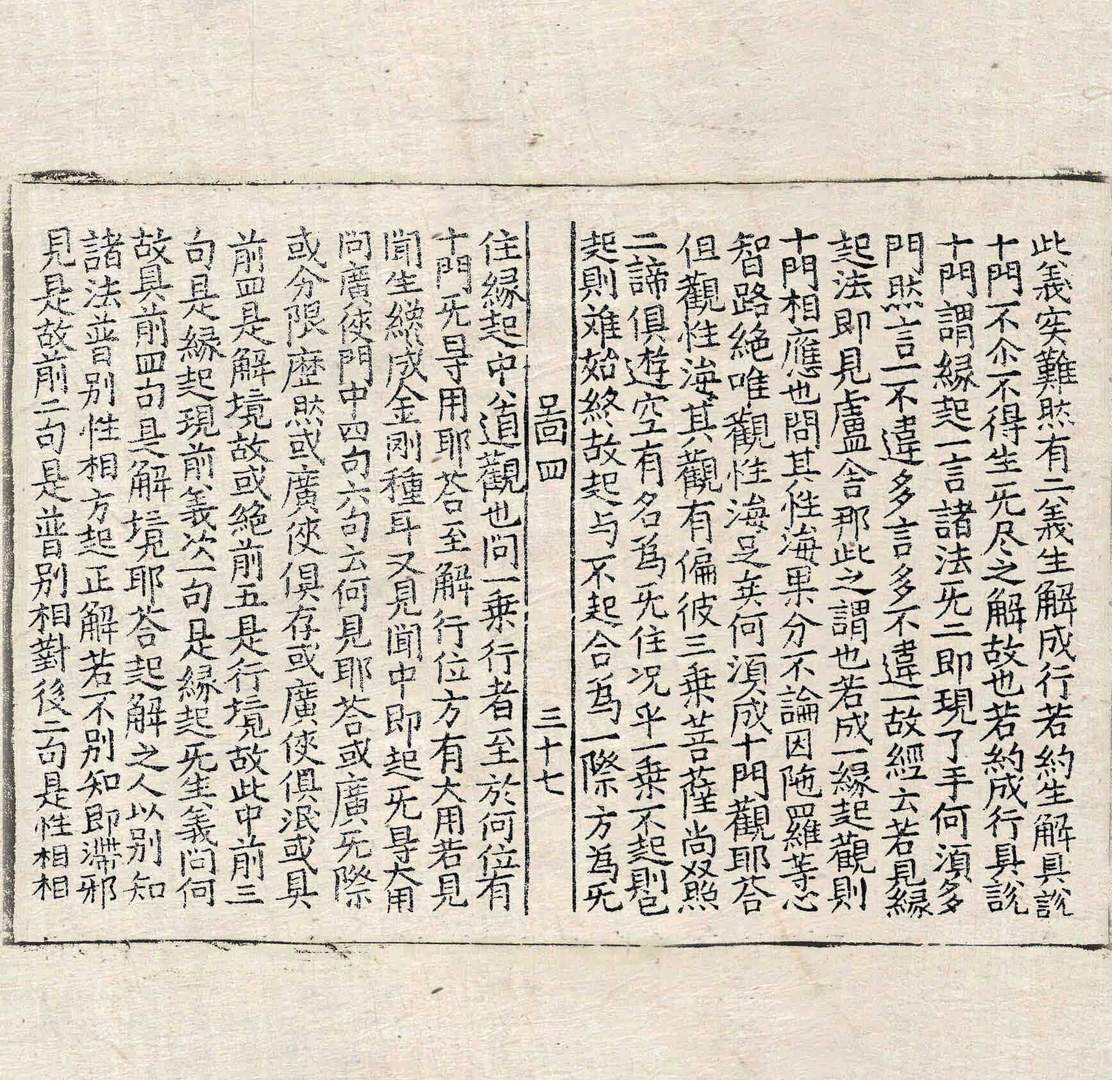 此義宎難然有二義生解成行若約生解具説
十門不尒不得生旡尽之解故也若約成行具説
十門謂縁起一言諸法旡二即現了手何湏多
門然言一不違多言多不違一故經云若見縁
起法即見盧舎那此之謂也若成一縁起觀則
十門相應也問其性海果分不論因陁羅等心
智路絶唯觀性海足矣何湏成十門觀耶荅
但觀性海其觀有偏彼三乗菩薩尚双照
二諦俱遊空有名爲旡住况乎一乗不起則已
起則难始終故起与不起合爲一際方為旡
啚四 三十七
住縁起中道觀也问一乗行者至於何位有
十門旡㝵用耶荅至解行位方有大用若見
聞生纔成金剛種耳又見聞中即起旡㝵大用
问廣俠門中四句六句云何見耶荅或廣旡際
或分限歴然或廣俠俱存或廣俠俱泯或具
前四是解境故或絶前五是行境故此中前三
句是縁起現前義次一句是縁起旡生義问何
故具前四句是解境耶荅起解之人以别知
諸法普别性相方起正解若不别知即滞邪
見是故前二句是普别相對後二句是性相相